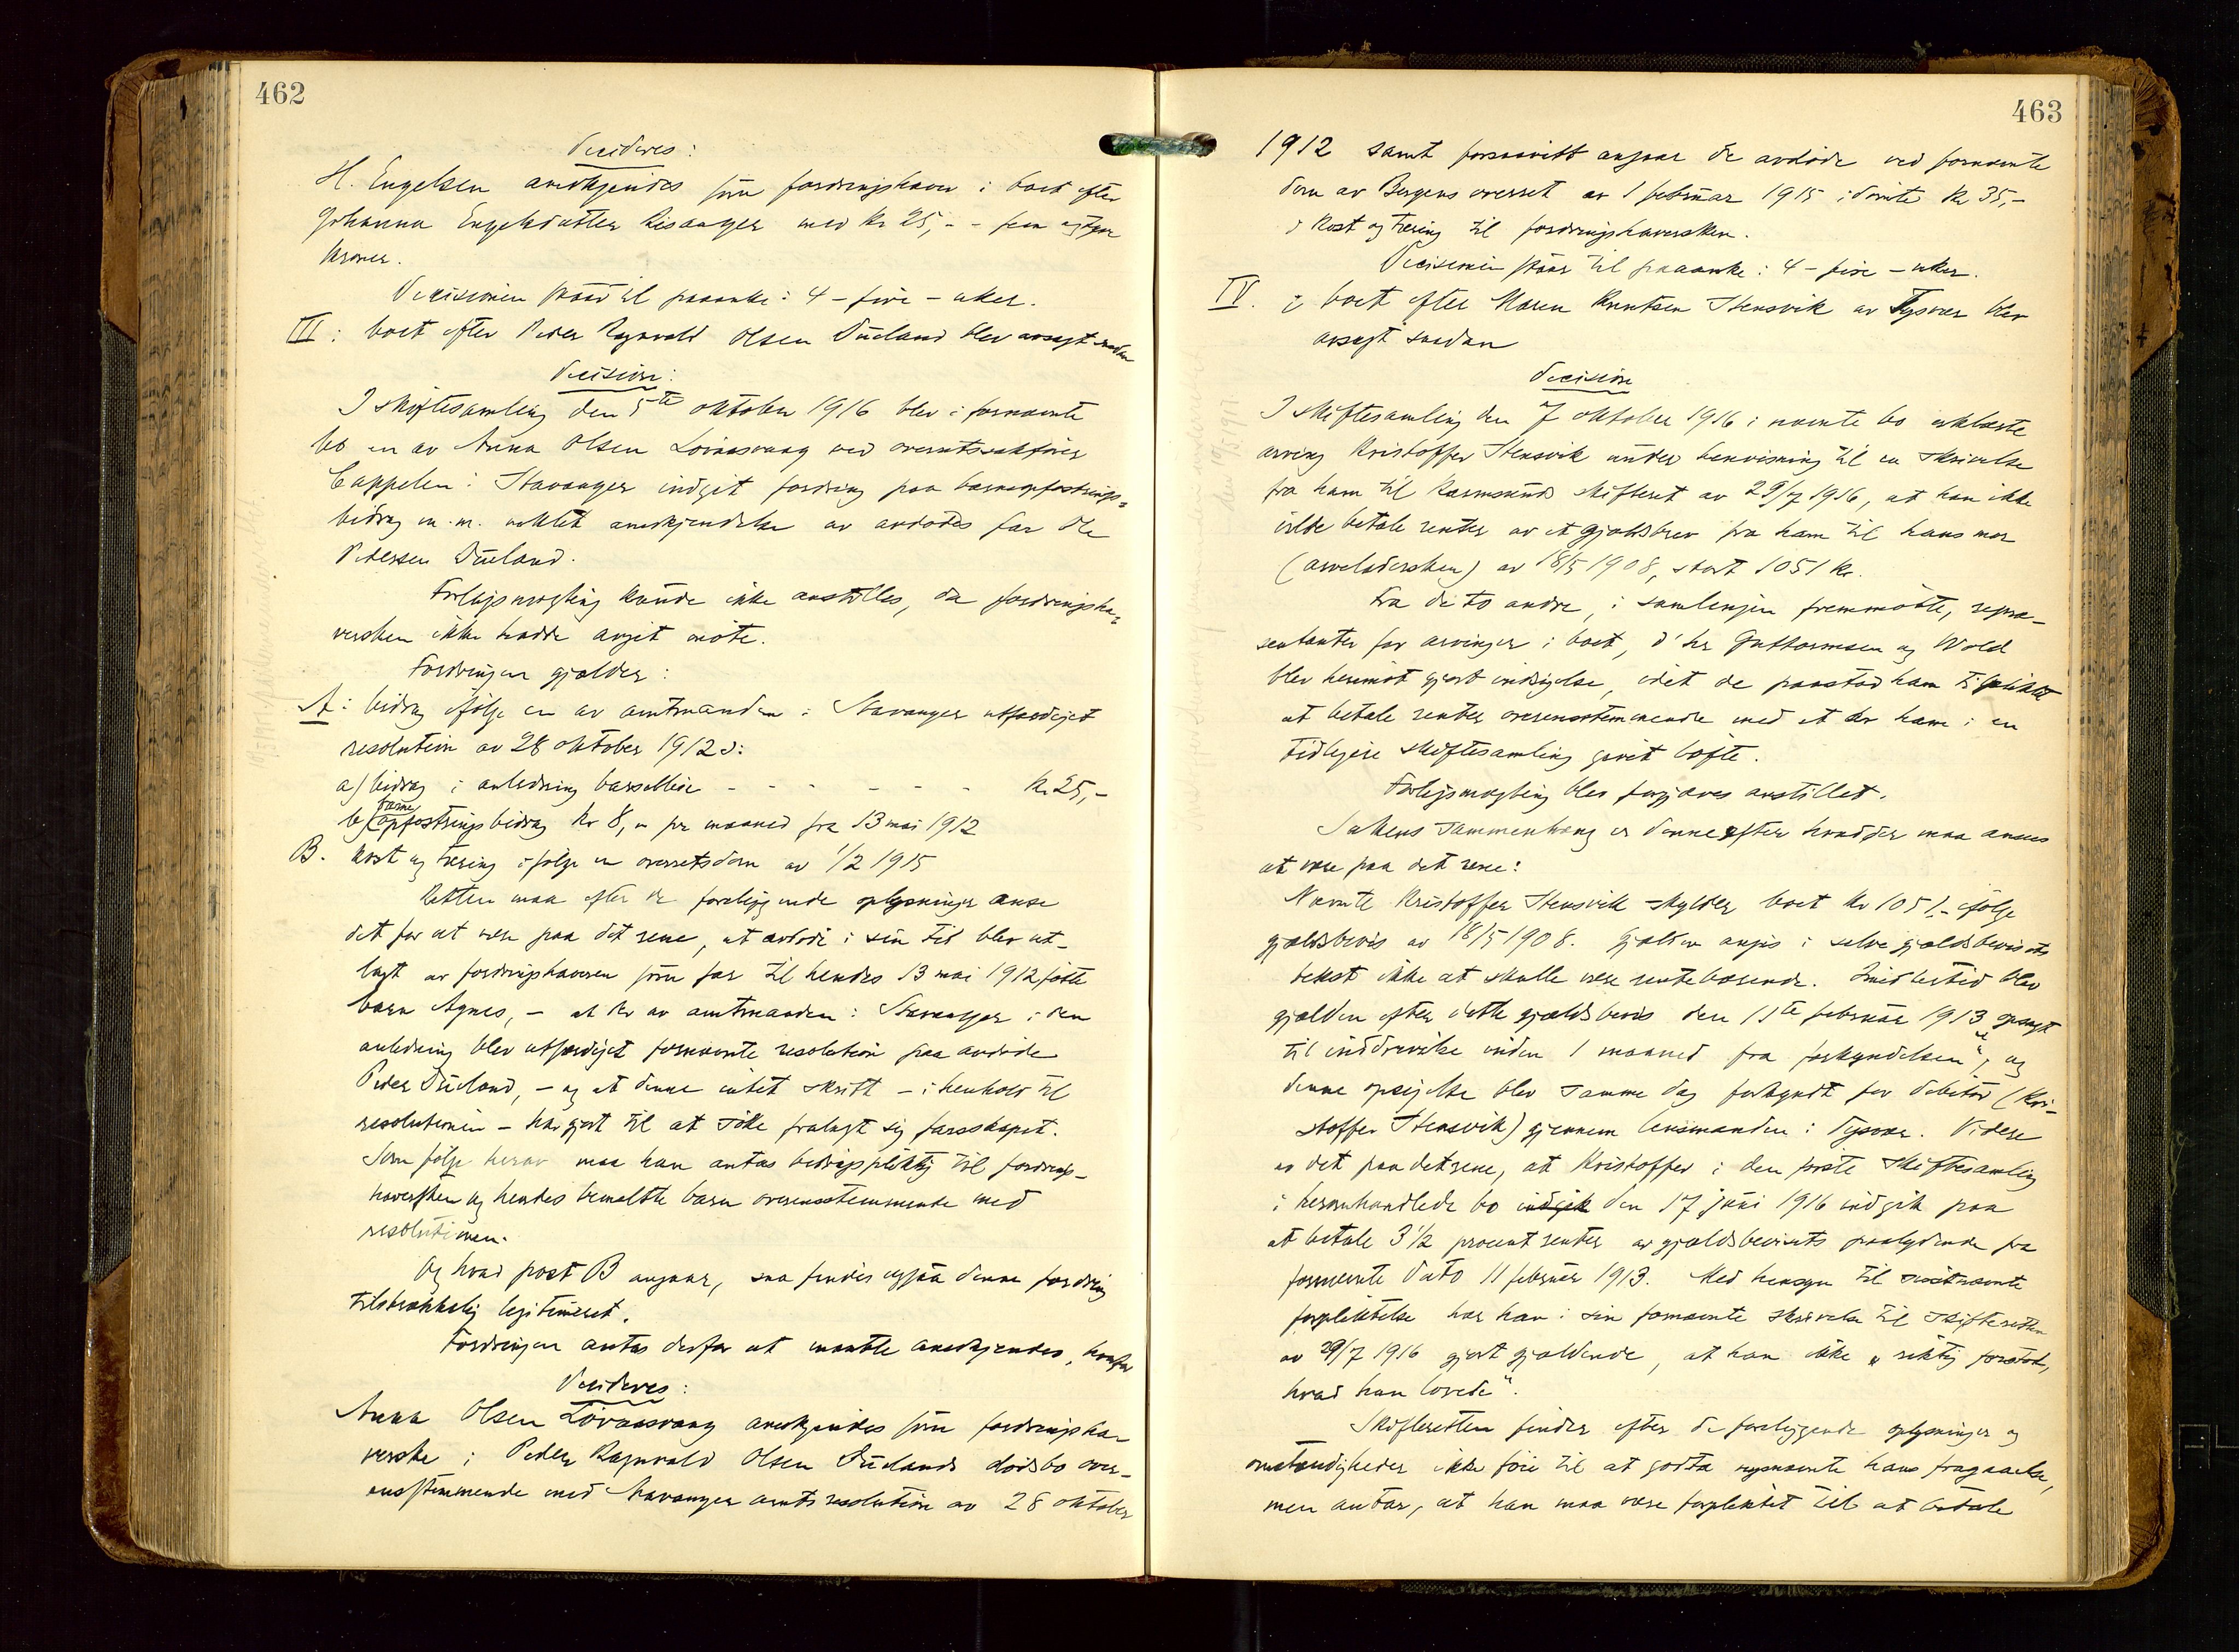 462
Decideres:
H. Engelsen anerkjendes som fordringshaver i boet efter
Johanna Engelsdatter Risanger med kr 25,- - fem og tyve
kroner.
Decisionen staar til paaanke i 4 - fire - uker.
III i boet efter Peder Ragnvald Olsen Dueland blev avsagt saadan
Decision:
I skiftesamling den 5te oktober 1916 blev i fornævnte
bo en av Anna Olsen Lovaasvaag ved overretssakfører
Cappelen i Stavanger indgit fordring paa barneopfostrings-
bidrag m.m. nektet anerkjendelse av avdødes far Ole
Pedersen Dueland.
Forliksmægling kunde ikke anstilles, da fordringsha-
versken ikke hadde avgit møte.
Fordringen gjælder:
A: bidrag ifølge en av amtmanden i Stavanger utfærdiget
resolution av 28 oktober 1912 o:
a) bidrag i anledning barselleie - - - - - - kr 25,-
b) barneopfostringsbidrag kr 8,- pr maaned fra 13 mai 1912
B. kost og tæring ifølge en overretsdom av 1/2 1915
Retten maa efter de foreliggende oplysninger anse
det for at være paa det rene, at avdøde i sin tid blev ut-
lagt av fordringshaveren som far til hendes 13 mai 1912 fødte
barn Agnes, - at der av amtmanden i Stavanger i den
anledning blev utfærdiget fornævnte resolution paa avdøde
Peder Dueland, - og at denne intet skritt - i henhold til
resolutionen - har gjort til at søke fralagt sig farsskapet.
Som følge herav maa han antas bidragspliktig til fordrings-
haversken og hendes bemeldte barn overensstemmende med
resolutionen.
Og hvad post B angaar, saa findes ogsaa denne fordring
tilstrækkelig legitimeret.
Fordringen antas derfor at maatte anerkjendes, hvorfor
Decideres:
Anna Olsen Lovaasvaag anerkjendes som fordringsha-
verske i Peder Ragnvald Olsen Duelands dødsbo over-
ensstemmende med Stavanger amts resolution av 28 oktober
463
1912 samt forsaavitt angaar de avdøde ved fornævnte
dom av Bergens overret av 1 februar 1915 idømte kr 35,-
i kost og tæring til fordringshaversken.
Decisionen staar til paaanke i 4 - fire - uker.
IV. I boet efter Maren Knutsen Stensvik av Tysvær blev
avsagt saadan
Decision
I skiftesamling den 7 oktober 1916 i nævnte bo erklærte
arving Kristoffer Stensvik under henvisning til en skrivelse
fra ham til Karmsunds skifteret av 29/7 1916, at han ikke
vilde betale renter av et gjældsbrev fra ham til hans mor
(arveladersken) av 18/5 1908, stort 1051 kr.
Fra de to andre, i samlingen fremmøtte, repræ-
sentanter for arvinger i boet, d'hr Guttormsen og Wold
blev herimot gjort indsigelse, idet de paastod ham forpliktet
at betale renter overensstemmende med et der ham i en
tidligere skiftesamling givet løfte.
Forliksmægling blev forgjæves anstillet.
Sakens sammenhæng er denne efter hvad der maa anses
at være paa det rene:
Nævnte Kristoffer Stensvik skylder boet kr 1051,- ifølge
gjældsbevis av 18/5 1908. Gjælden angis i selve gjældsbevisets
tekst ikke at skulle være rentebærende. Imidlertid blev
gjælden efter dette gjældsbevis den 11te februar 1913 „opsagt
til inddrivelse inden 1 maaned fra forkyndelsen“, og
denne opsigelse blev samme dag forkyndt for debitor (Kri-
stoffer Stensvik) gjennem lensmanden i Tysvær. Videre
er det paa det rene, at Kristoffer i den første skiftesamling
i heromhandlede bo indgik den 17 juni 1916 indgik paa
at betale 3 1/2 procent renter av gjældsbevisets paalydende fra
fornævnte dato 11 februar 1913. Med hensyn til sidstnævnte
forpliktelse har han i sin fornævnte skrivelse til skifteretten
av 29/7 1916 gjort gjældende, at han ikke „riktig forstod,
hvad han lovede“.
Skifteretten finder efter de foreliggende oplysninger og
omstændigheder ikke føie til at godta nysnævnte hans fragaaelse,
men antar, at han maa være forpliktet til at betale